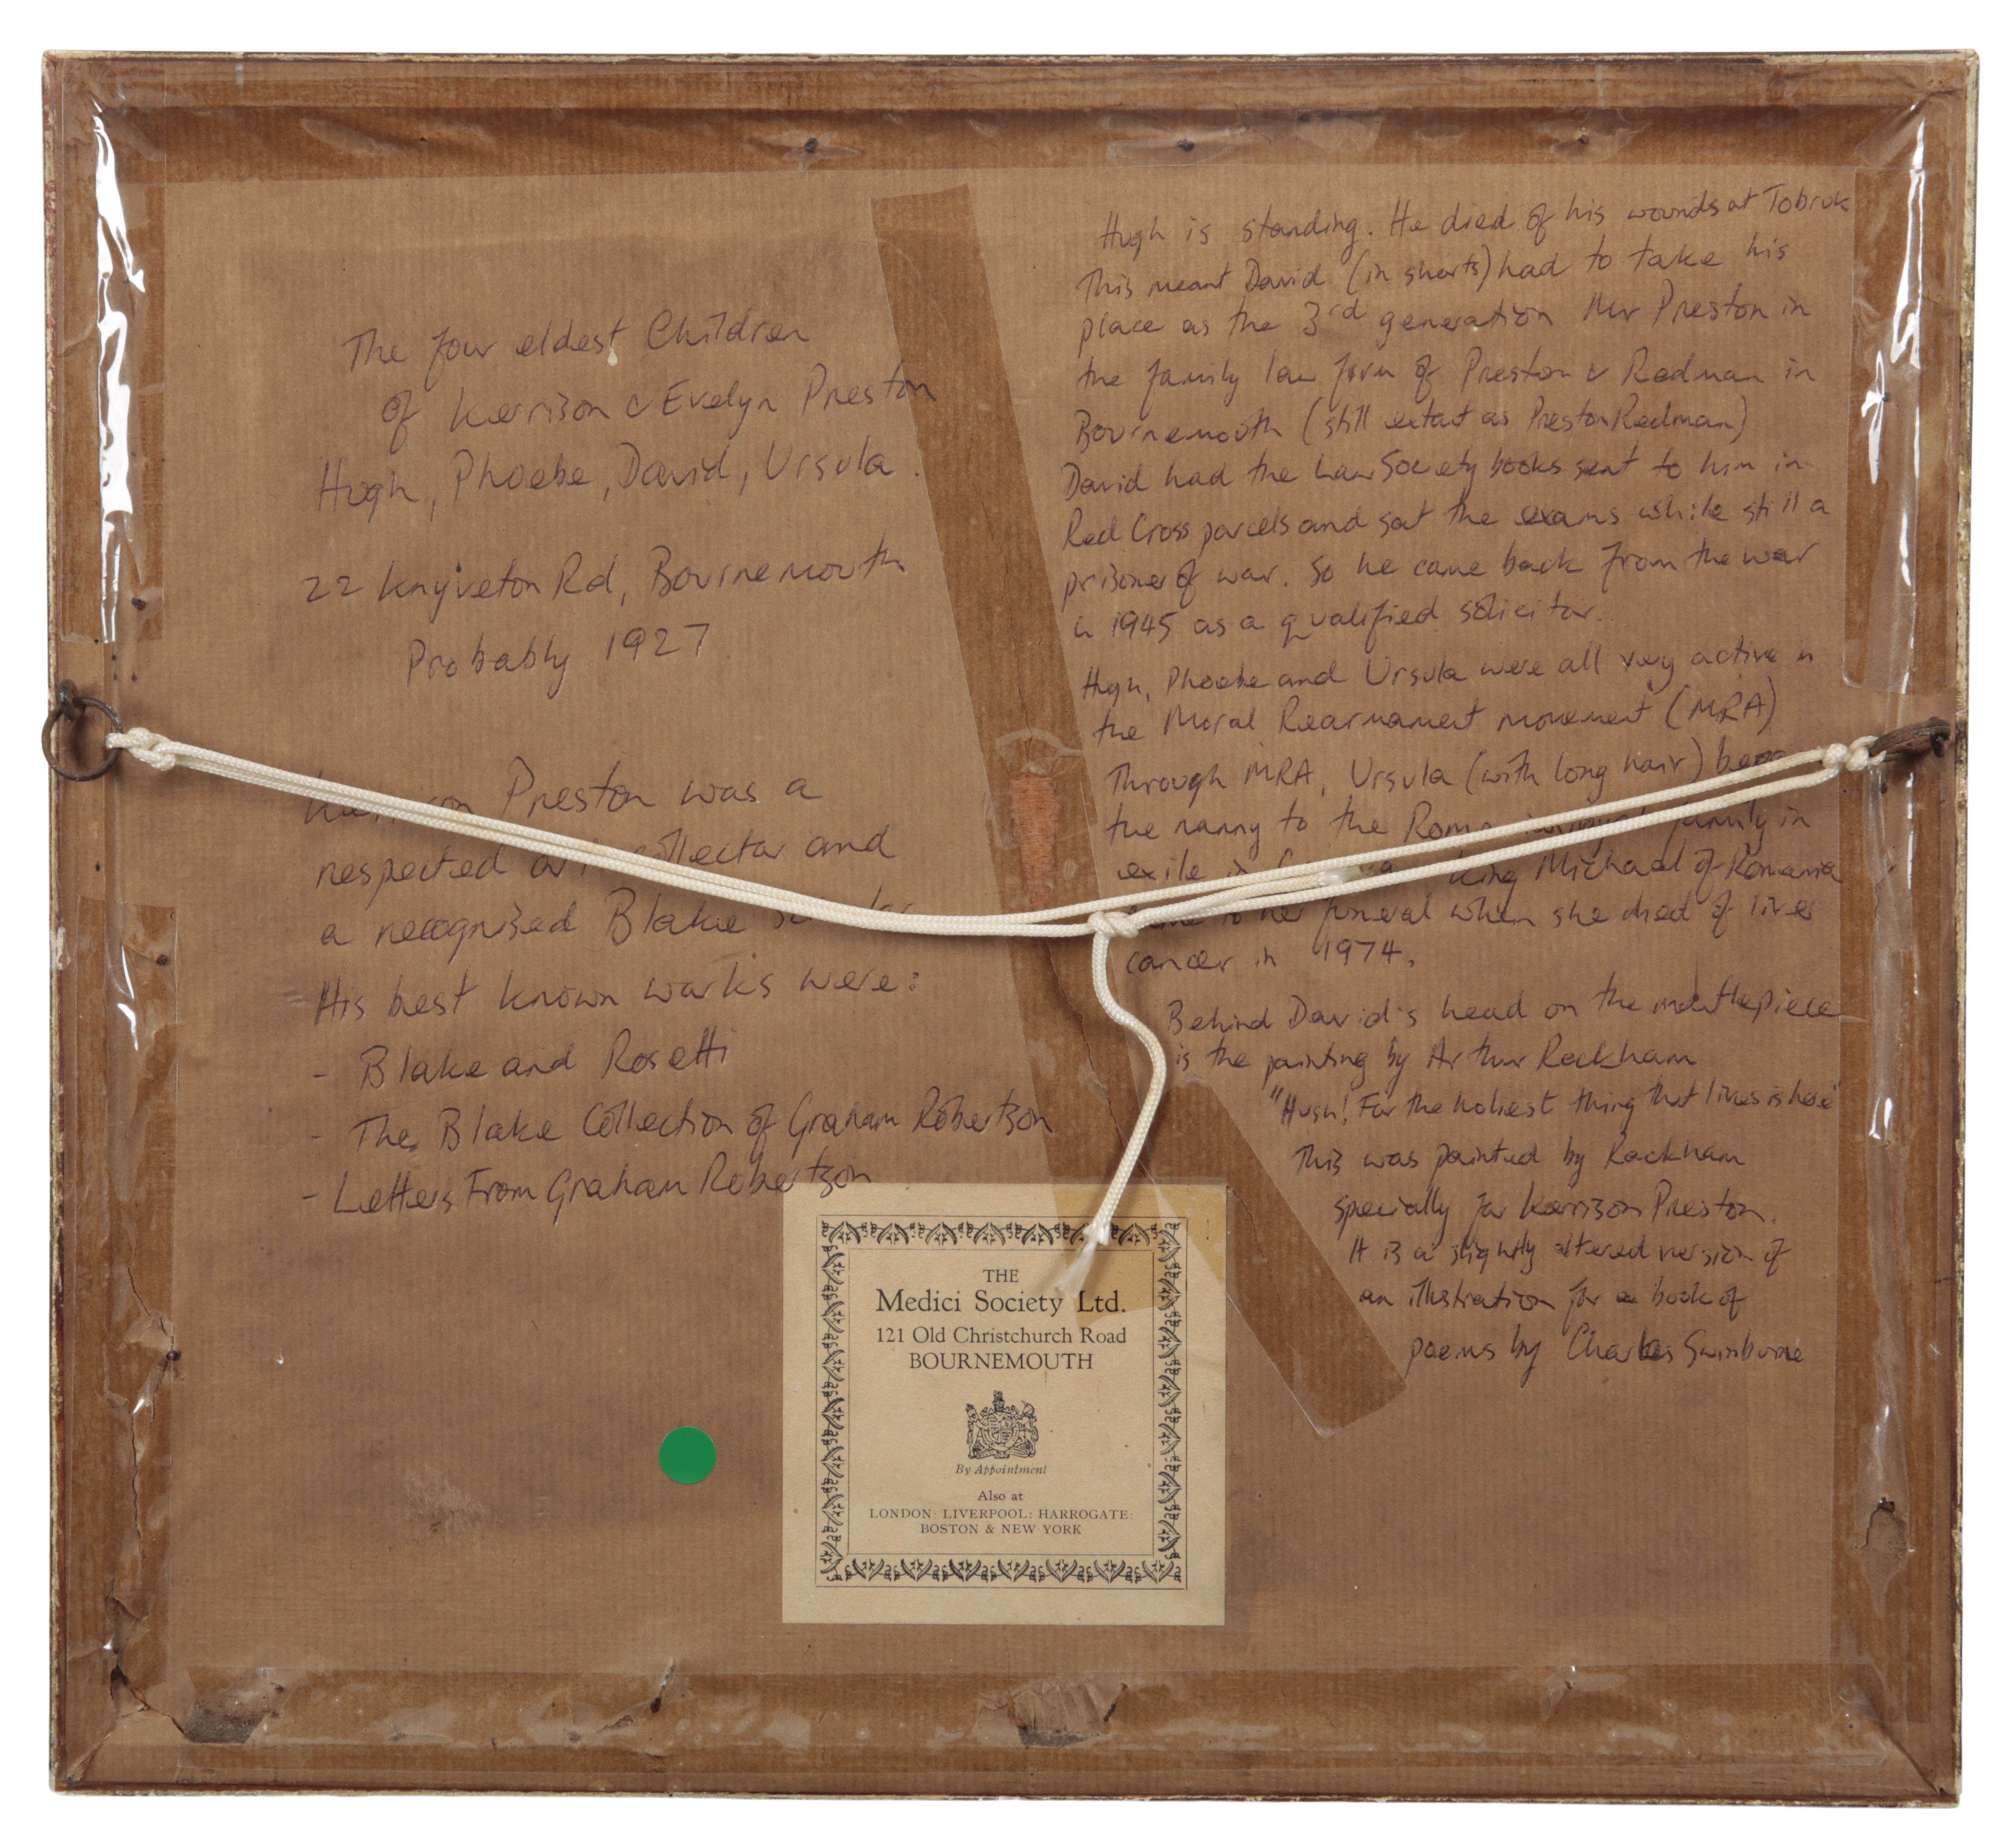 The four eldest Children
of Kerrison & Evelyn Preston
Hugh, Phoebe, David, Ursula.
22 Knyveton Rd, Bournemouth
Probably 1927
Preston was a
respected collector and
a recognised Blake
His best known works were:
- Blake and Rosetti
- The Blake Collection of Graham Robertson
- Letters From Graham Robertson
Hugh is standing. He died of his wounds at Tobruk
This meant David (in shorts) had to take his
place as the 3rd generation Mr Preston in
the family law firm of Preston & Redman in
Bournemouth (still extat as Preston Redman)
David had the Law Society books sent to him in
Red Cross parcels and sat the exams while still a
prisoner of war. So he came back from the war
in 1945 as a qualified solicitor.
Hugh, Phoebe and Ursula were all very active in
the Moral Rearmament movement (MRA)
Through MRA, Ursula (with long hair)
the nanny to the family in
exile King Michael of Romania
to her funeral when she died of liver
cancer in 1974.
Behind David's head on the mantlepiece
is the painting by Arthur Rackham
"Hush! For the holiest thing that lives is here"
This was painted by Rackham
specially for Kerrison Preston.
It is a slightly altered version of
an illustration for a book of
poems by Charles Swinburne
THE
Medici Society Ltd.
121 Old Christchurch Road
BOURNEMOUTH
By Appointment
Also at
LONDON: LIVERPOOL: HARROGATE:
BOSTON & NEW YORK